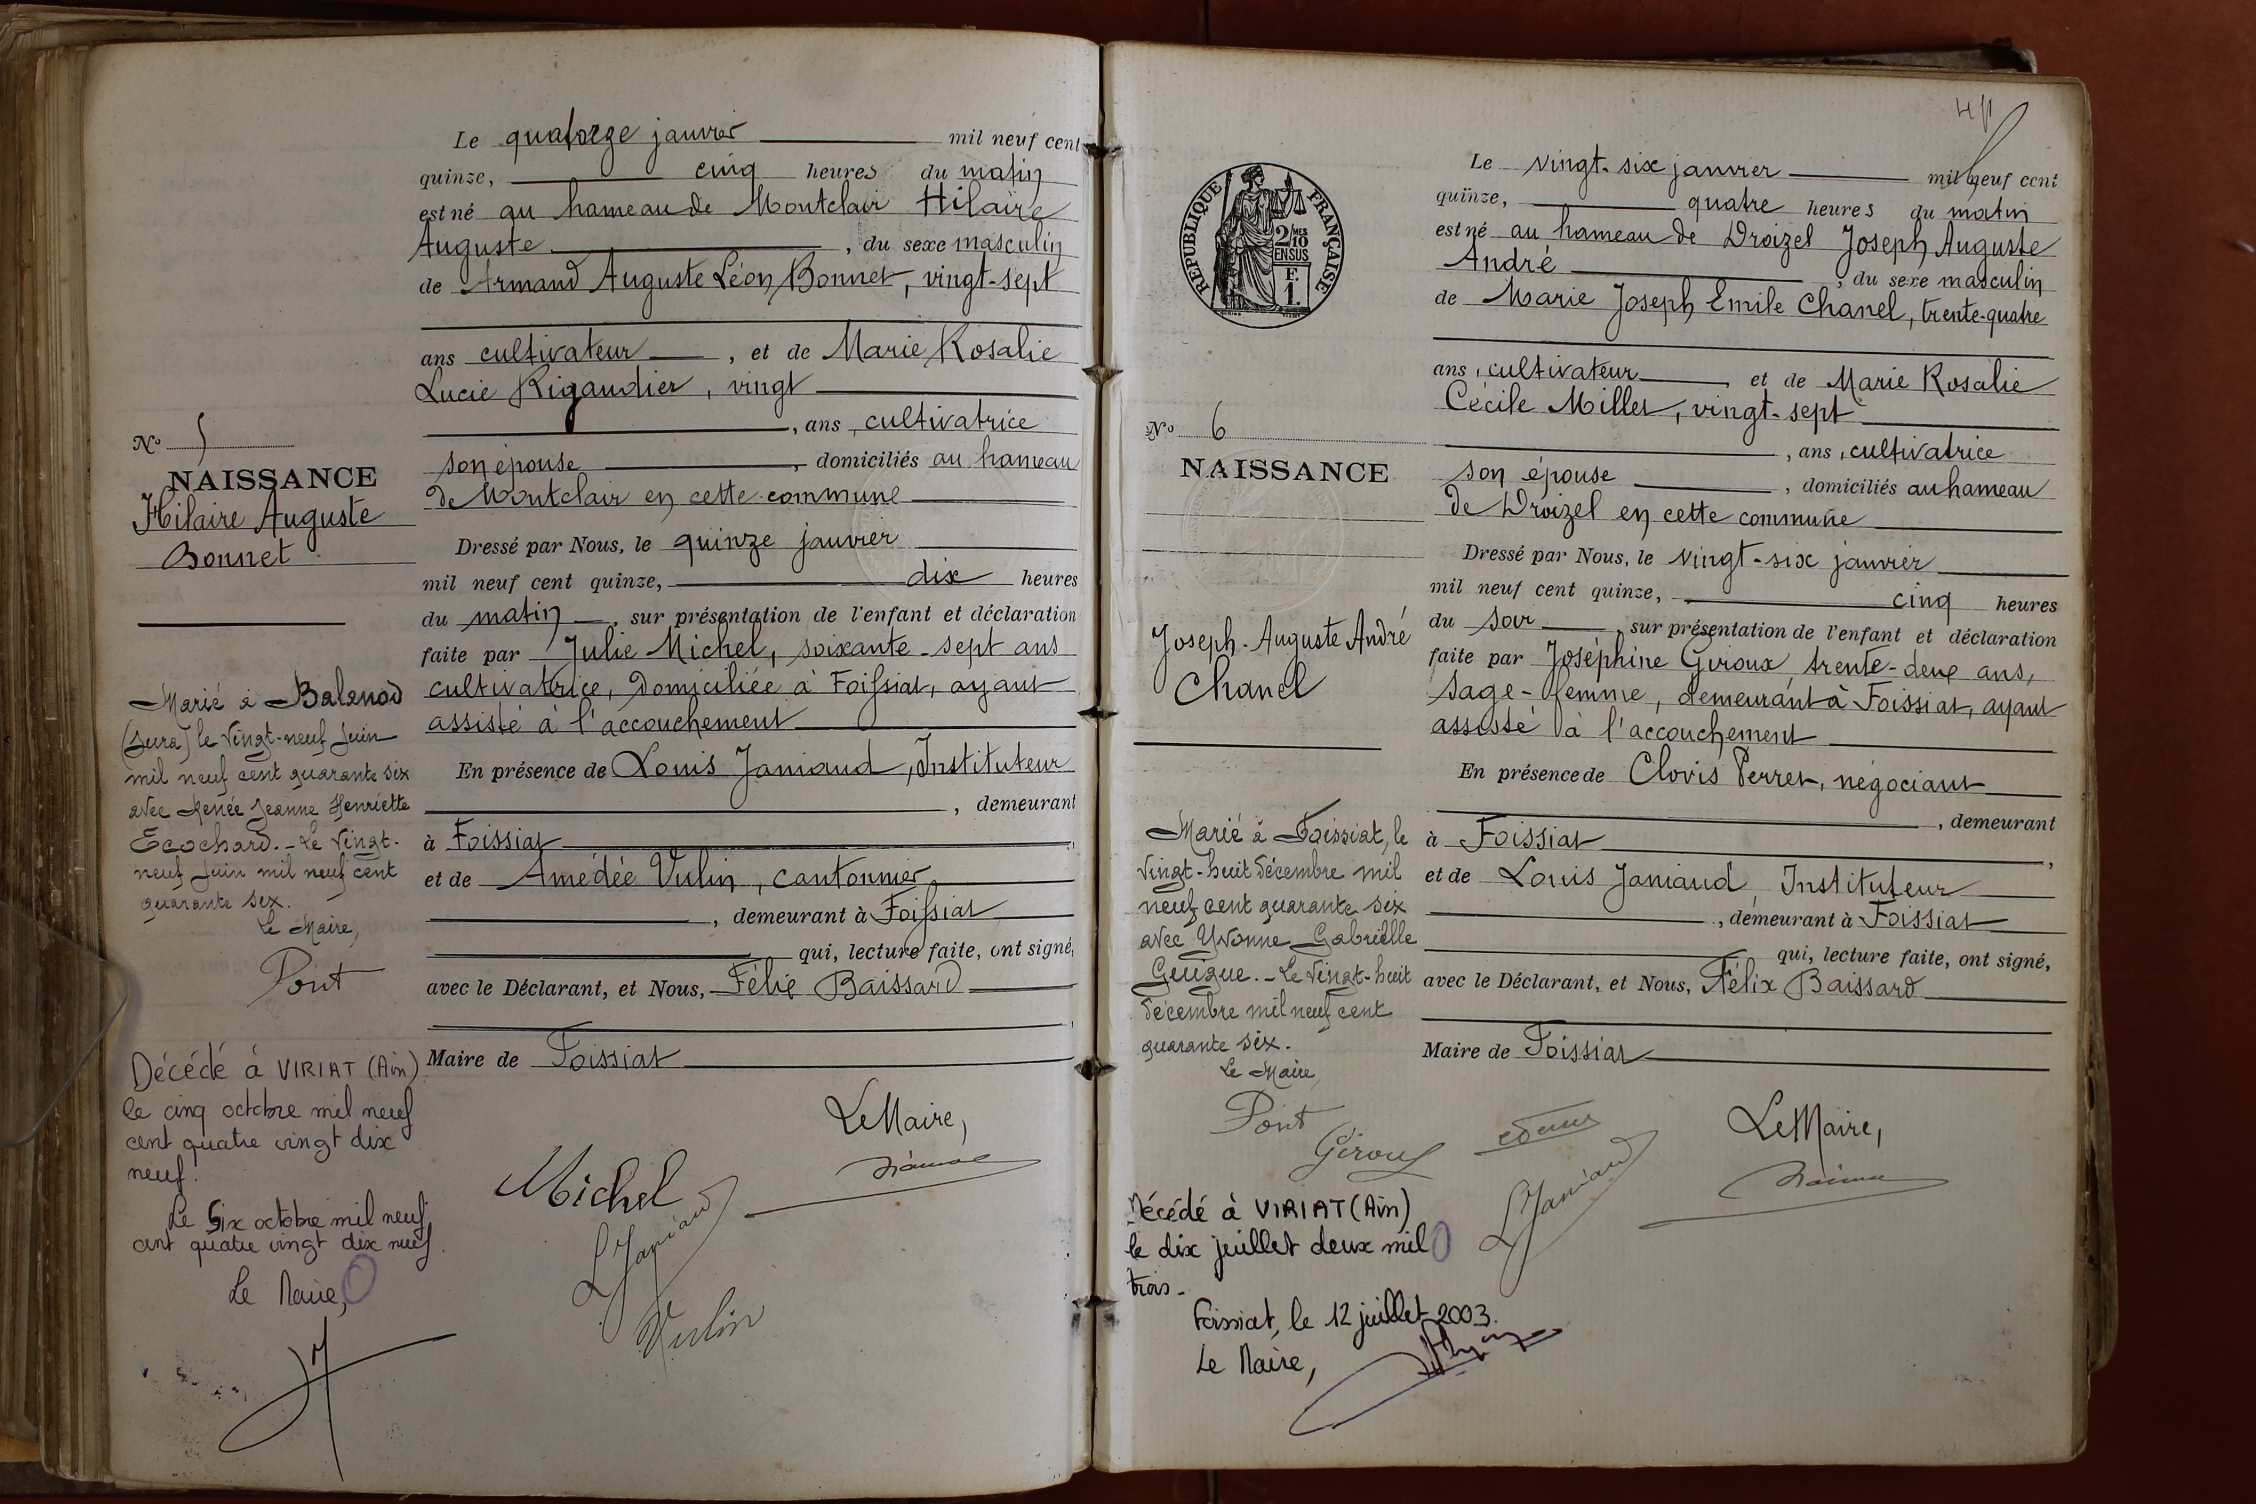 Le quatorze janvier mil neuf cent
quinze, cinq heures du matin
est né au hameau de Montclair Hilaire
Auguste, du sexe masculin
de Armand Auguste Léon Bonnet, vingt-sept
ans cultivateur, et de Marie Rosalie
Lucie Rigaudier, vingt
, ans, cultivatrice
son épouse, domiciliés au hameau
de Montclair en cette commune
Dressé par Nous, le quinze janvier
mil neuf cent quinze, dix heures
du matin, sur présentation de l'enfant et déclaration
faite par Julie Michel, soixante-sept ans
cultivatrice, domiciliée à Foissiat, ayant
assisté à l'accouchement
En présence de Louis Janiaud, Instituteur
, demeurant
à Foissiat
et de Amédée Vulin, cantonnier
, demeurant à Foissiat
qui, lecture faite, ont signé,
avec le Déclarant, et Nous, Félix Baissard
Maire de Foissiat
Le Maire,
Michel
L Janiaud
Vulin
No 5
NAISSANCE
Hilaire Auguste
Bonnet
Marié à Balanod
(Jura) le vingt-neuf juin
mil neuf cent quarante six
avec Renée Jeanne Henriette
Ecochard. - Le vingt-
neuf juin mil neuf cent
quarante six.
Le Maire,
Pont
Décédé à VIRIAT (Ain)
le cinq octobre mil neuf
cent quatre vingt dix
neuf.
Le Six octobre mil neuf
cent quatre vingt dix neuf.
Le Maire,
RÉPUBLIQUE FRANÇAISE
2/10 MES
EN SUS
F.
1.
Le vingt-six janvier mil neuf cent
quinze, quatre heures du matin
est né au hameau de Droizel Joseph Auguste
André, du sexe masculin
de Marie Joseph Emile Chanel, trente-quatre
ans, cultivateur, et de Marie Rosalie
Cécile Millet, vingt-sept
, ans, cultivatrice
son épouse, domiciliés au hameau
de Droizel en cette commune
Dressé par Nous, le vingt-six janvier
mil neuf cent quinze, cinq heures
du soir, sur présentation de l'enfant et déclaration
faite par Joséphine Giroux, trente-deux ans,
sage-femme, demeurant à Foissiat, ayant
assisté à l'accouchement
En présence de Clovis Perret, négociant
, demeurant
à Foissiat,
et de Louis Janiaud, Instituteur
, demeurant à Foissiat
qui, lecture faite, ont signé,
avec le Déclarant, et Nous, Félix Baissard
Maire de Foissiat
Le Maire,
Giroux
L Janiaud
No 6
NAISSANCE
Joseph-Auguste André
Chanel
Marié à Foissiat, le
vingt-huit décembre mil
neuf cent quarante six
avec Yvonne Gabrielle
Guigue. - Le vingt-huit
décembre mil neuf cent
quarante six.
Le Maire
Pont
Décédé à VIRIAT (Ain)
le dix juillet deux mil
trois -
Foissiat, le 12 juillet 2003.
Le Maire,